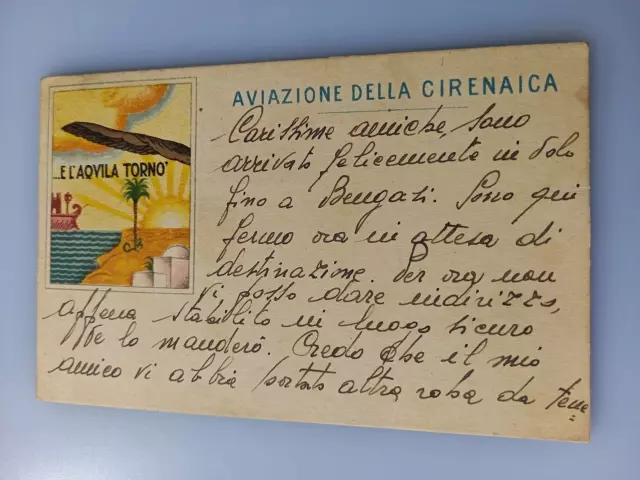 AVIAZIONE DELLA CIRENAICA
...E L'AQVILA TORNO'
Carissime amiche, sono
arrivato felicemente in volo
fino a Bengasi. Sono qui
fermo ora in attesa di
destinazione. Per ora non
vi posso dare indirizzo,
appena stabilito in luogo sicuro
ve lo manderò. Credo che il mio
amico vi abbia portato altra roba da tene=